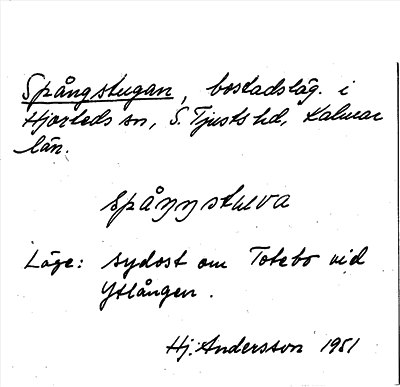 Spångstugan, bostadsläg. i
Hjorteds sn, S. Tjusts hd, Kalmar
län.
spåŋŋstuva
Läge: sydost om Totebo vid
Yxlången.
Hj. Andersson 1951